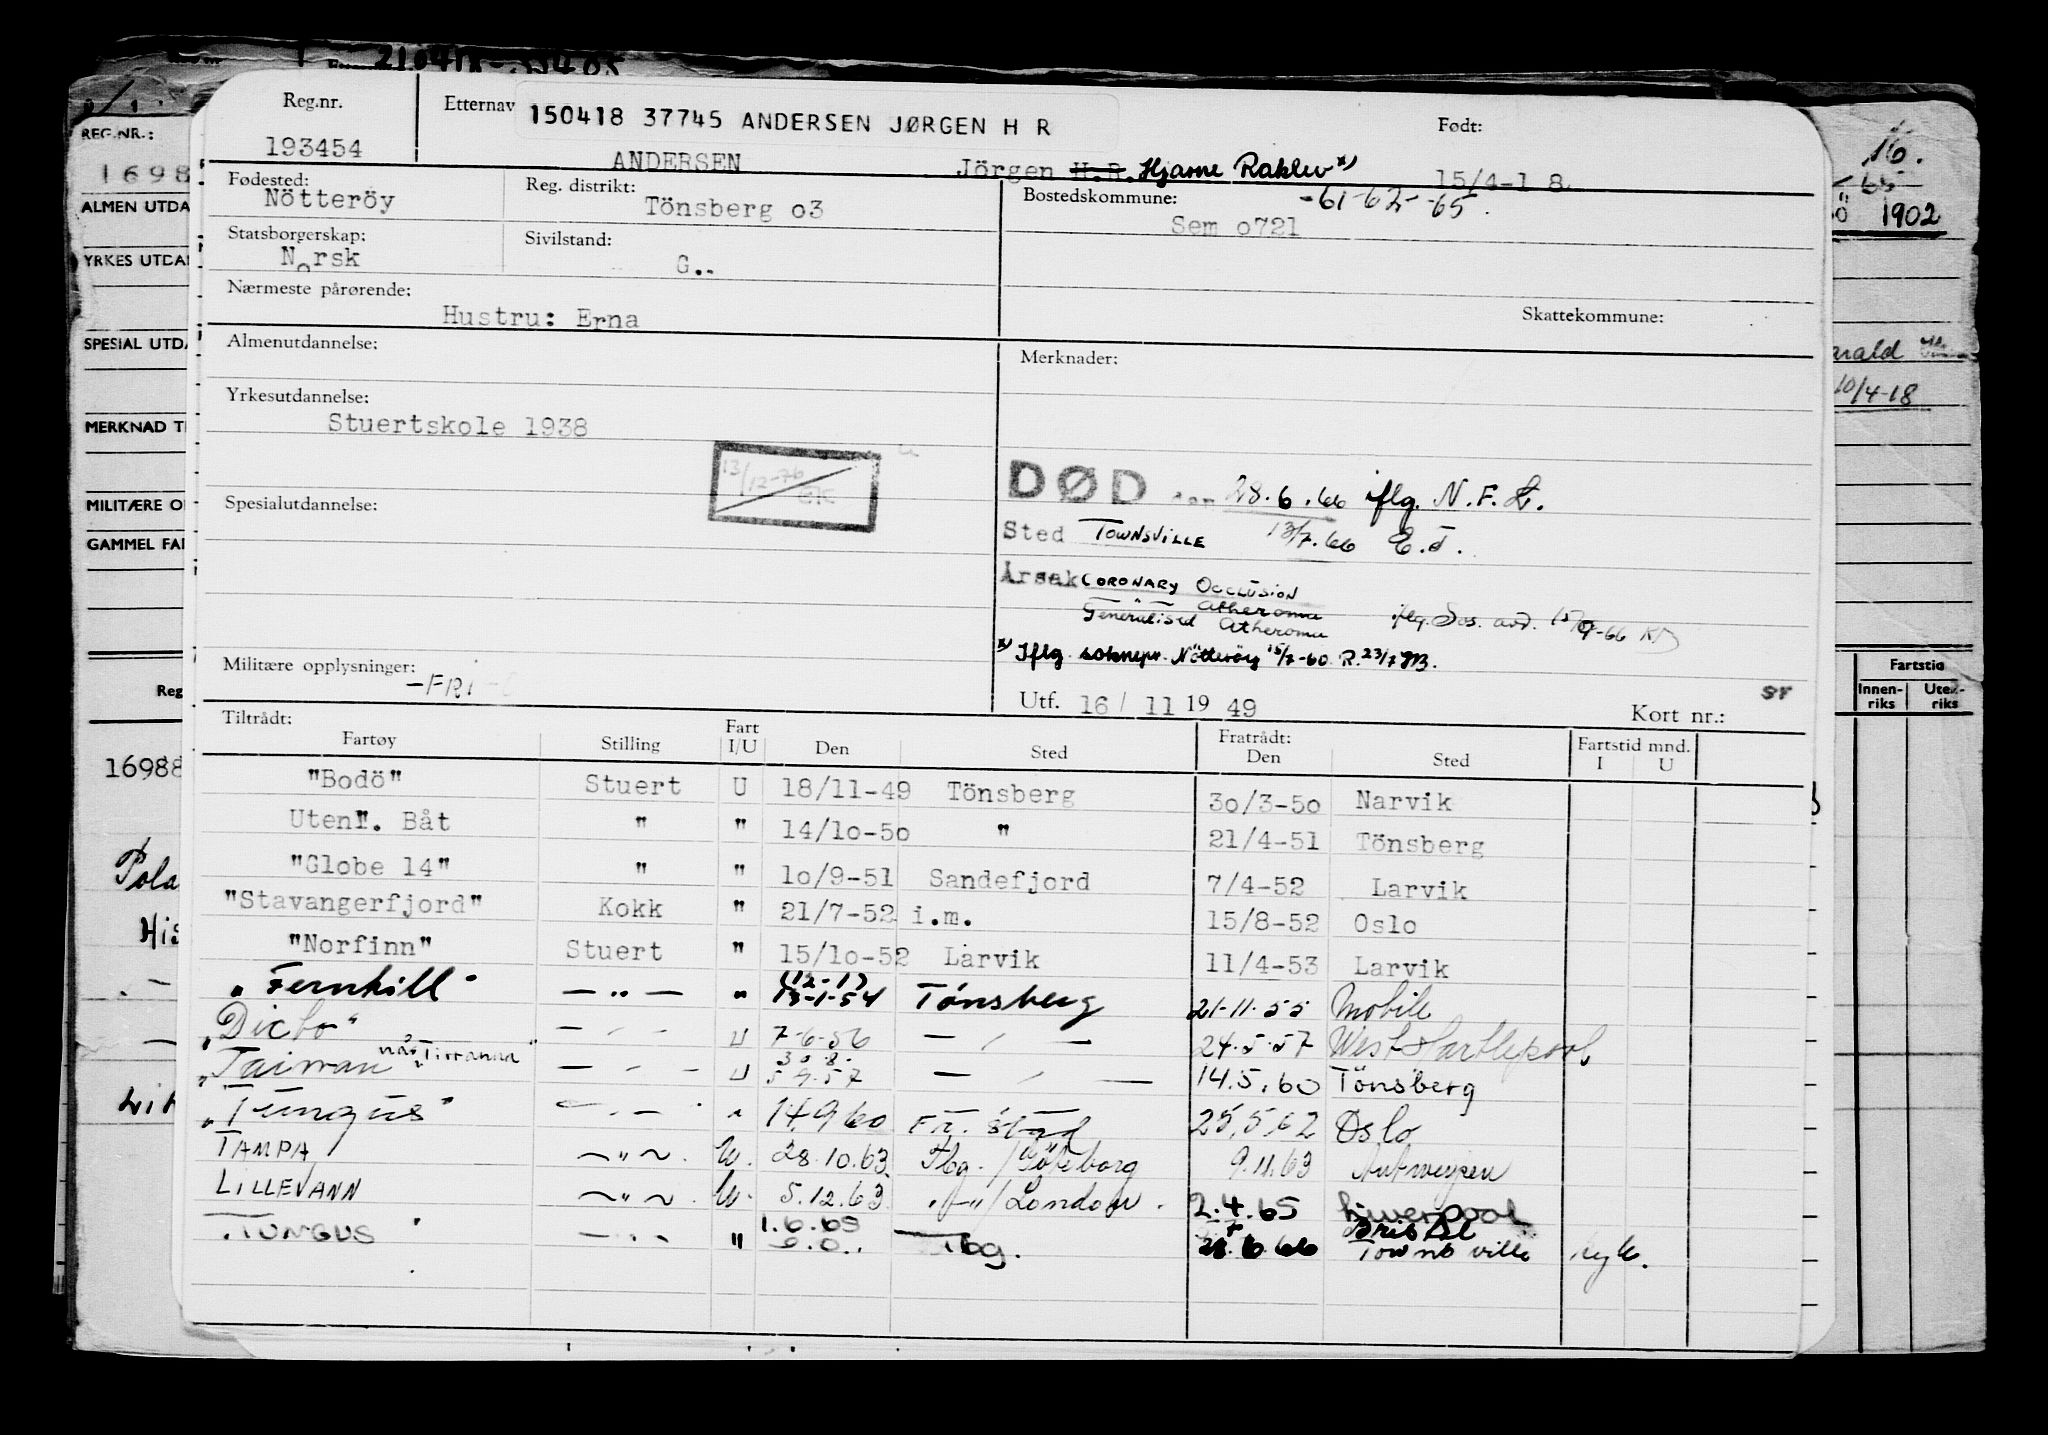 210418
Reg.nr. Etternav 150418 37745 ANDERSEN JØRGEN H R Født:
193454 ANDERSEN Jörgen H.R. Hjarne Raklev x) 15/4-18
Fødested: Reg. distrikt: Bostedskommune: -61-62- -65.
Nötteröy Tönsberg o3 Sem o721
Statsborgerskap: Sivilstand:
Norsk G..
Nærmeste pårørende:
Hustru: Erna Skattekommune:
Almenutdannelse: Merknader:
Yrkesutdannelse:
Stuertskole 1938
13/12-76
DØD den 28.6.66 iflg. N.F.L.
Spesialutdannelse:
Sted TOWNSVILLE 13/7.66 E.J.
Årsak CORONARY OCCLUSION
Atheroma
Generalised Atheroma iflg. Sos. avd. 15/9-66
x) Iflg. soknepr. Nötteröy 15/7-60 R. 23/7
Militære opplysninger:
-FRI-
Utf. 16 / 11 19 49 Kort nr.:
Tiltrådt: Fratrådt: Fartstid mnd.
Fartøy Stilling Fart I/U Den Sted Den Sted I U
"Bodö" Stuert U 18/11-49 Tönsberg 3o/3-5o Narvik
Utenl. Båt " " 14/1o-5o " 21/4-51 Tönsberg
"Globe 14" " " 1o/9-51 Sandefjord 7/4-52 Larvik
"Stavangerfjord" Kokk " 21/7-52 i.m. 15/8-52 Oslo
"Norfinn" Stuert " 15/1o-52 Larvik 11/4-53 Larvik
"Fernhill" — " — " (12-1) 13-1-54 Tönsberg 21-11-55 Mobile
"Dicto" — " — U 7-6-56 — " — 24.5.57 West Hartlepool
"Taiwan" nå "Tirranna" — " — U 30.8. 5.9.57 — " — 14.5.60 Tönsberg
"Tungus" — " — " 14.9.60 Fr. stad 25.5.62 Oslo
TAMPA — " — U. 28.10.63 Tbg. / Göteborg 9.11.63 Antwerpen
LILLEVANN — " — U. 5.12.63 — " — / London 2.4.65 Liverpool
"TUNGUS" — " — " 1.6.65 Tbg. Bristol
28.6.66 Townsville syk.
REG.NR.:
1698
ALMEN UTDA
YRKES UTDA
SPESIAL UTDA
MERKNAD T
MILITÆRE O
GAMMEL FA
Reg
16988
Pola
His
16.
65
1902
arald
10/4-18
Fartstid
Innen-riks Uten-riks